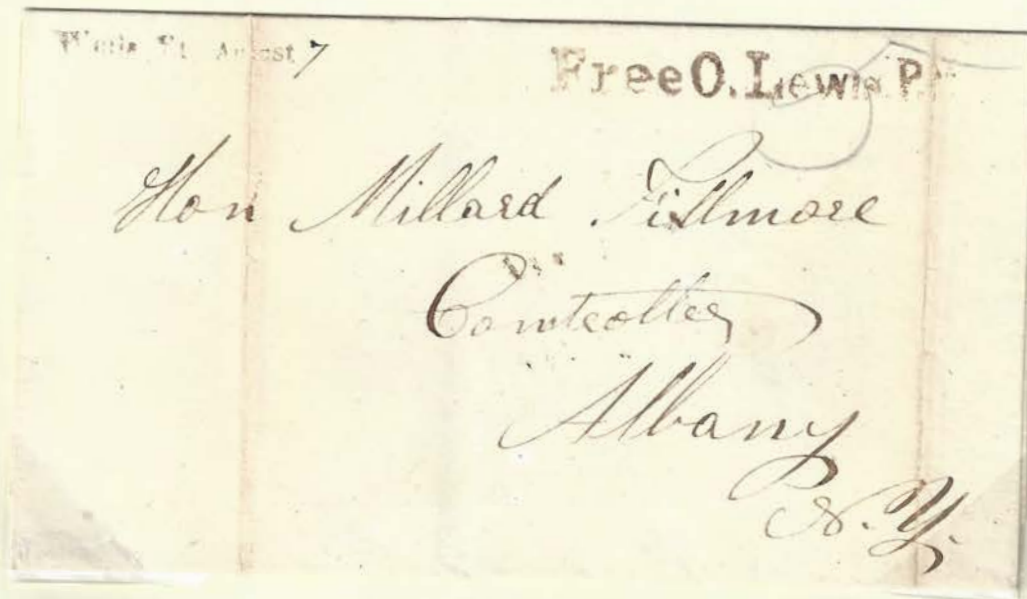 Vt. August 7
Free O. Lewis P.M
Hon Millard Fillmore
Comtroller
Albany
N.Y.